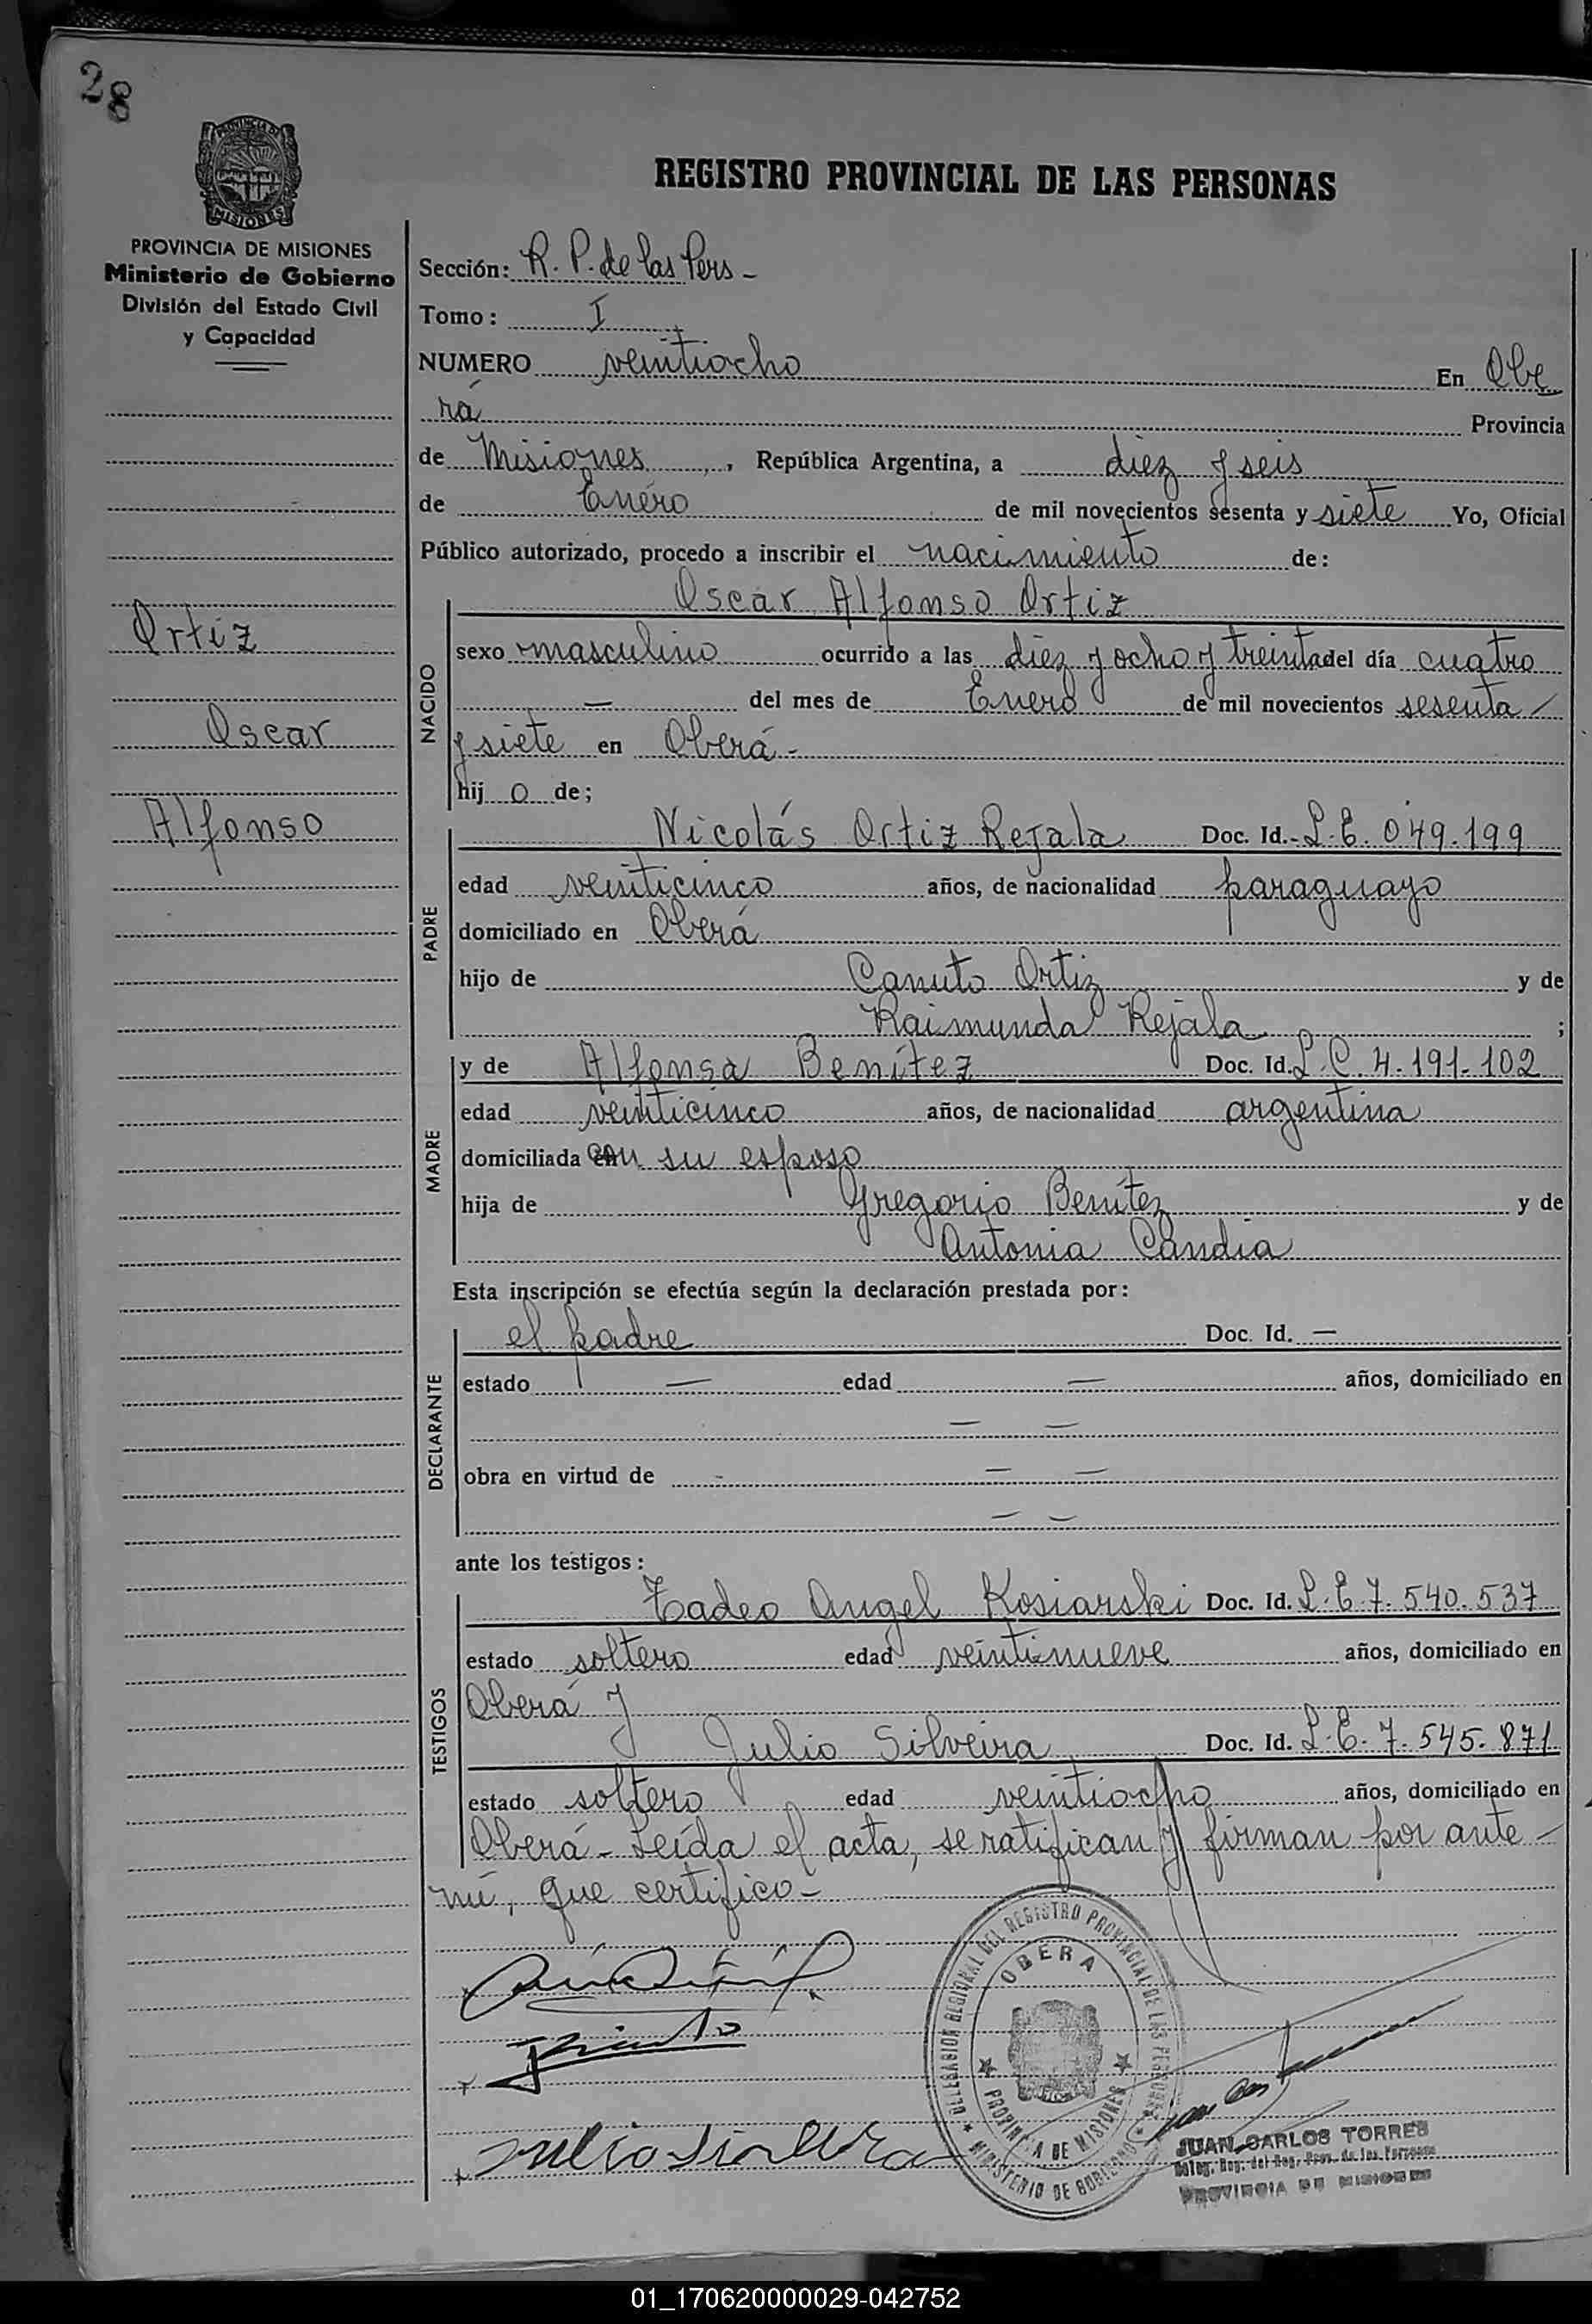 28
PROVINCIA DE
MISIONES
REGISTRO PROVINCIAL DE LAS PERSONAS
PROVINCIA DE MISIONES
Ministerio de Gobierno
División del Estado Civil
y Capacidad
Sección: R. P. de las Pers -
Tomo: I
NUMERO veintiocho En Obe
rá Provincia
de Misiones, República Argentina, a diez y seis
de Enero de mil novecientos sesenta y siete Yo, Oficial
Público autorizado, procedo a inscribir el nacimiento de:
Ortiz
Oscar
Alfonso
NACIDO
Oscar Alfonso Ortiz
sexo masculino ocurrido a las diez y ocho y treinta del día cuatro
— del mes de Enero de mil novecientos sesenta
y siete en Oberá -
hij o de;
PADRE
Nicolás Ortiz Rejala Doc. Id.- L.E. 049.199
edad veinticinco años, de nacionalidad paraguayo
domiciliado en Oberá
hijo de Canuto Ortiz y de
Raimunda Rejala ;
MADRE
y de Alfonsa Benítez Doc. Id. L.C. 4.191.102
edad veinticinco años, de nacionalidad argentina
domiciliada con su esposo
hija de Gregorio Benítez y de
Antonia Candia
Esta inscripción se efectúa según la declaración prestada por:
DECLARANTE
el padre Doc. Id. —
estado — edad — años, domiciliado en
— —
obra en virtud de - — —
— —
ante los testigos:
TESTIGOS
Tadeo Angel Kosiarski Doc. Id. L.E. 7.540.537
estado soltero edad veintinueve años, domiciliado en
Oberá y
Julio Silveira Doc. Id. L.E. 7.545.871
estado soltero edad veintiocho años, domiciliado en
Oberá - Leída el acta, se ratifican y firman por ante -
mí, que certifico -
DELEGACION REGIONAL DEL REGISTRO PROVINCIAL DE LAS PERSONAS
OBERA
PROVINCIA DE MISIONES
MINISTERIO DE GOBIERNO
Julio Silveira
JUAN CARLOS TORRES
Deleg. Reg. del Reg. Prov. de las Personas
PROVINCIA DE MISIONES
01_170620000029-042752